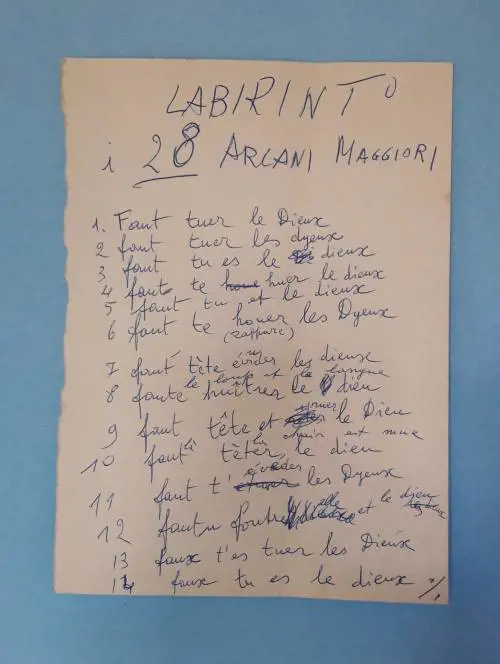 LABIRINTO
i 28 ARCANI MAGGIORI
1. Faut tuer le Dieux
2 faut tuer les dyeux
3 faut tu es le dieux
4 faute te huer le dieux
5 faut tu et le dieux
6 faut te houer les Dyeux
(zappare)
7 faut tête évider les dieux
le loup et la langue
8 faute huîtres le dieu
9 faut tête et le Dieu
10 faut téter le dieu
11 faut t' évider les Dyeux
12 faut foutre elle et le dieu
13 faux t'es tuer les Dieux
14 faux tu es le dieux